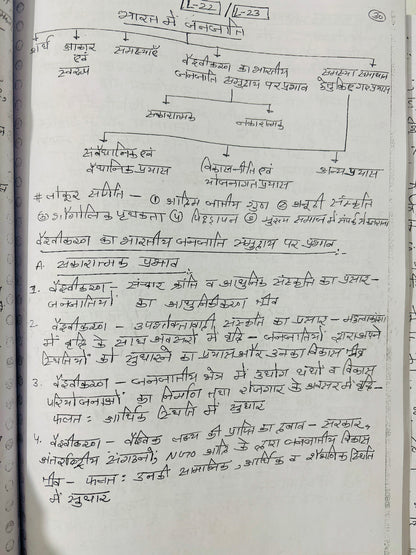 L-22 / L-23
30
भारत में जनजाति
अर्थ
आकार एवं स्वरूप
समस्याएँ
वैश्वीकरण का भारतीय जनजाति समुदाय पर प्रभाव
समस्या समाधान हेतु किए गए प्रयास
सकारात्मक
नकारात्मक
संवैधानिक एवं वैधानिक प्रयास
विकास नीति एवं योजनागत प्रयास
अन्य प्रयास
# लोकुर समिति - ① आदिम जातीय गुण ② अनूठी संस्कृति
③ भौगोलिक पृथक्कता ④ पिछड़ापन ⑤ मुख्य समाज से संपर्क में संकोच
वैश्वीकरण का भारतीय जनजाति समुदाय पर प्रभाव:
A. सकारात्मक प्रभाव
1. वैश्वीकरण - संचार क्रांति व आधुनिक संस्कृति का प्रसार -
जनजातियों का आधुनिकीकरण तीव्र
2. वैश्वीकरण - उपभोक्तावादी संस्कृति का प्रसार - महत्वाकांक्षा
में वृद्धि के साथ अवसरों में वृद्धि - जनजातियों द्वारा अपने
स्थितियों को सुधारने का प्रयास और उनका विकास तीव्र
3. वैश्वीकरण - जनजातीय क्षेत्र में उद्योग धंधों व विकास
परियोजनाओं का निर्माण तथा रोजगार के अवसर में वृद्धि -
फलत: आर्थिक स्थिति में सुधार
4. वैश्वीकरण - वैश्विक लक्ष्य की प्राप्ति का दबाव - सरकार,
अंतर्राष्ट्रीय संगठनों, NGO आदि के द्वारा जनजातीय विकास
तीव्र - फलत: उनकी सामाजिक, आर्थिक व शैक्षणिक स्थिति
में सुधार